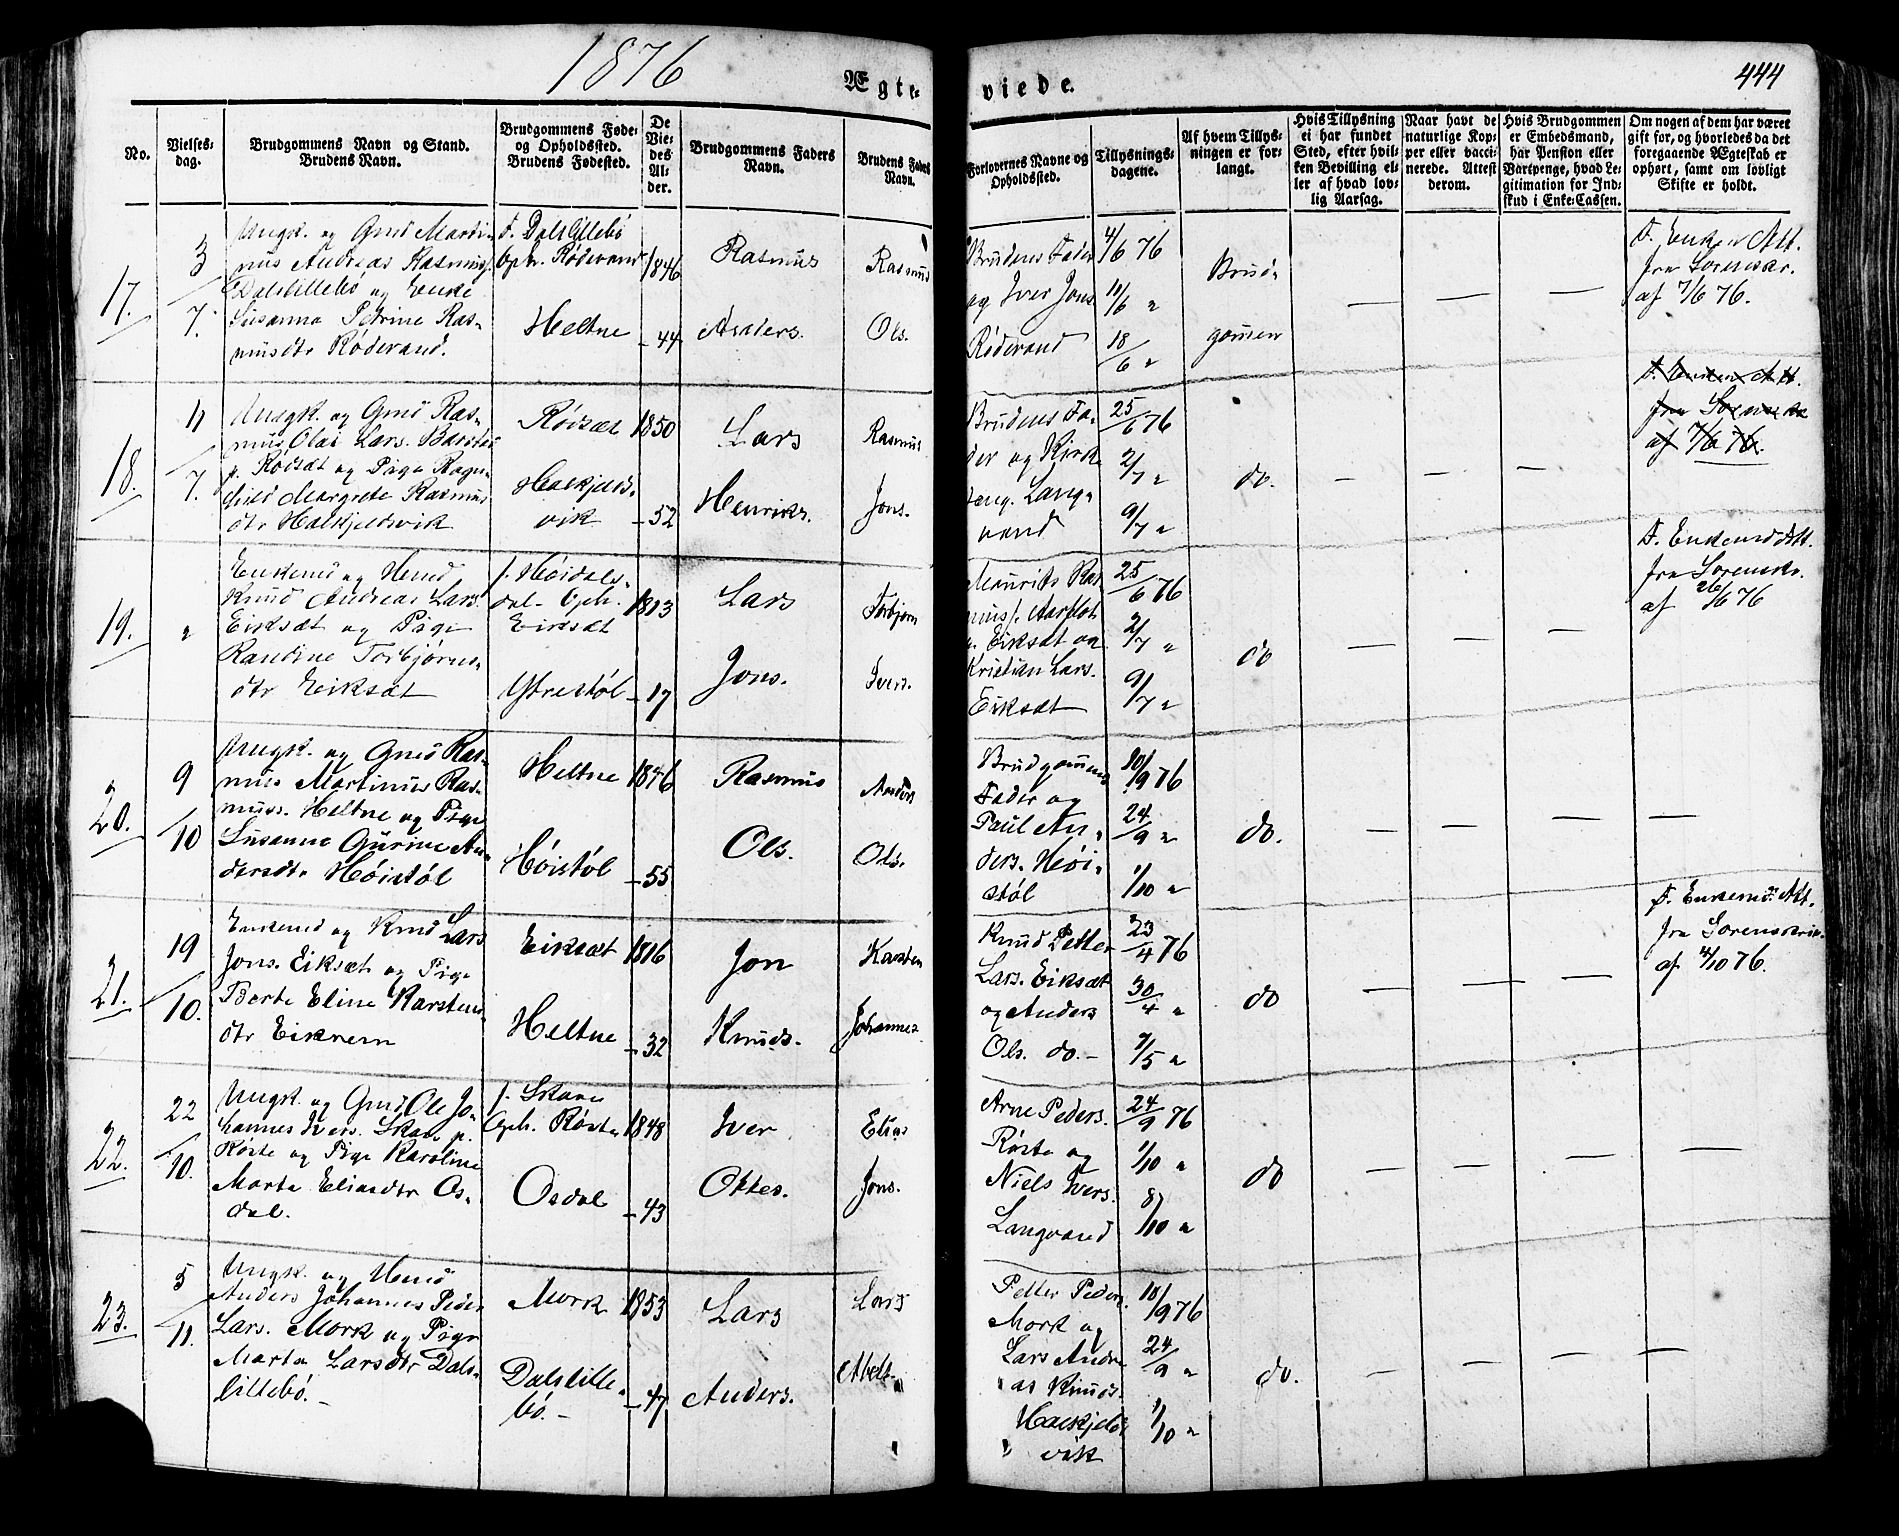 1876
444
Ægte-
viede.
No.
Vielses-
dag.
Brudgommens Navn og Stand.
Brudens Navn.
Brudgommens Føde-
og Opholdssted.
Brudens Fødested.
De
Vie-
des
Al-
der.
Brudgommens Faders
Navn.
Brudens Faders
Navn.
Forlovernes Navne og
Opholdssted.
Tillysnings-
dagene.
Af hvem Tillys-
ningen er for-
langt.
Hvis Tillysning
ei har fundet
Sted, efter hvil-
ken Bevilling el-
ler af hvad lov-
lig Aarsag.
Naar havt de
naturlige Kop-
per eller vacci-
nerede. Attest
derom.
Hvis Brudgommen
er Embedsmand,
har Pension eller
Vartpenge, hvad Le-
gitimation for Ind-
skud i Enke-Cassen.
Om nogen af dem har været
gift før, og hvorledes da det
foregaaende Ægteskab er
ophørt, samt om lovligt
Skifte er holdt.
17.
3/7.
Ungk. og Gmd Marti-
nus Andreas Rasmus.
Dalslillebø og Enke
Susanna Petrine Ras-
musdtr Røderand.
f. Dalslillebø
Oph. Røderand
Heltne
1846
- 44
Rasmus
Anders.
Rasmus
Ols.
Brudens Fader
og Iver Jons
Røderand
4/6 76
11/6 "
18/6 "
Brud-
gomen
—
—
—
F. Enken Att.
fra Sorenskr.
af 7/6 76.
18.
11/7.
Ungk. og Gmd Ras-
mus Olai Lars. Barstad
p. Røisæt og Pige Ragn-
hild Margrete Rasmus
dtr Halkjelsvik
Røisæt
Halkjels-
vik
1850
- 52
Lars
Henriks.
Rasmus
Jons.
Brudens Fa-
der og Kirke
sang. Lang-
vand
25/6 76
2/7 "
9/7 "
do.
—
—
—
F. Enken Att.
fra Sorenskr
af 7/6 76.
19.
"
Enkemd og Hmd
Knud Andreas Lars.
Eiksæt og Pige
Randine Torbjørns-
dtr Eiksæt
f. Høidals-
dal - Oph.
Eiksæt
Ytrestøl
1813
- 17
Lars
Jons.
Torbjørn
Ivers.
Maurits Ras
mus. Aarflot
p. Eiksæt og
Kristian Lars.
Eiksæt
25/6 76
2/7 "
9/7 "
do
—
—
—
F. Enkemd Att.
fra Sorenskr.
af 26/6 76
20.
9/10
Ungk. og Gmd Ras-
mus Martinus Ras-
muss. Heltne og Pige
Susanne Gurine An-
dersdtr Høistøl
Heltne
Høistøl
1846
- 55
Rasmus
Ols.
Anders
Ols.
Brudgommens
Fader og
Paul An-
ders. Høi-
støl
/9 76
24/9 "
1/10 "
do.
—
—
—
—
21.
19/10.
Enkemd og Knud Lars
Jons. Eiksæt og Pige
Berte Eline Karstens-
dtr Eikrem
Eiksæt
Heltne
1816
- 32
Jon
Knuds.
Karsten
Johannes
Knud Petter
Lars. Eiksæt
og Anders
Ols. do. -
23/4 76
30/4 "
7/5 "
do
—
—
—
F. Enkemd Att.
fra Sorenskriv.
af 4/10 76.
22.
22/10.
Ungk. og Gmd Ole Jo-
hannes Ivers. Skare p.
Røste og Pige Karoline
Marta Eliasdtr Os-
dal.
f. Skare
Oph. Røste
Osdal
1848
- 43
Iver
Ottes.
Elias
Jons.
Arne Peders.
Røste og
Niels Ivers.
Langvand
24/9 76
1/10 "
8/10 "
do
—
—
—
—
23.
5/11.
Ungk. og Hmd
Anders Johannes Peder
Lars. Mork og Pige
Marta Larsdtr Dals-
lillebø. -
Mork
Dalslille-
bø. -
1853
- 47
Lars
Anders.
Lars
Abels.
Petter Peders.
Mork og
Lars Andre
as Knuds.
Halkjels-
vik
/9 76
24/9 "
1/10 "
do.
—
—
—
—